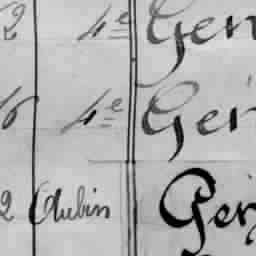 2 4e Gen
6 4e Gér
2 Aubin Gér